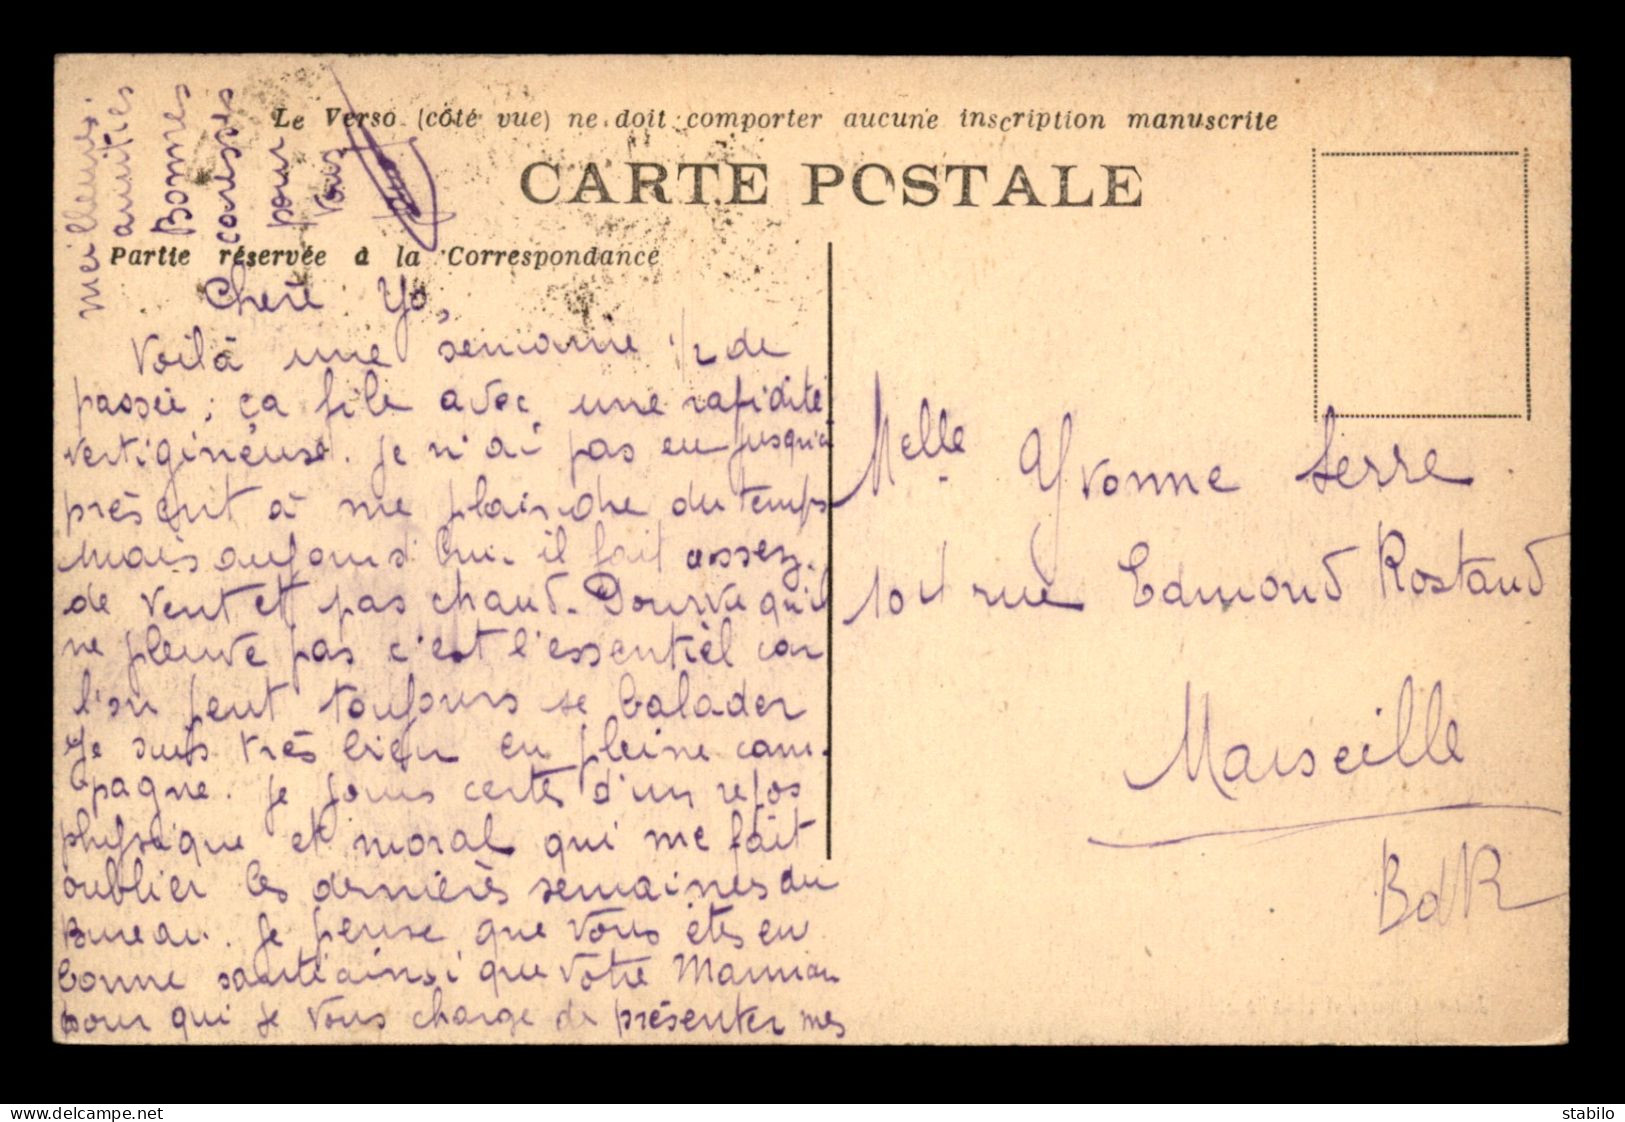 Le Verso (côté vue) ne doit comporter aucune inscription manuscrite
CARTE POSTALE
Partie réservée à la Correspondance
Chère Yo,
Voilà une semaine 1/2 de
passée ; ça file avec une rapidité
vertigineuse. Je n'ai pas eu jusqu'à
présent à me plaindre du temps
mais aujourd'hui il fait assez
de vent et pas chaud. Pourvu qu'il
ne pleuve pas c'est l'essentiel car
l'on peut toujours se balader
Je suis très bien en pleine cam-
pagne. Je jouis certes d'un repos
physique et moral qui me fait
oublier les dernières semaines du
Bureau. Je pense que vous êtes en
bonne santé ainsi que votre Maman
pour qui je vous charge de présenter mes
meilleures
amitiés
Bonnes
caresses
pour
vous
Melle Yvonne Serre
104 rue Edmond Rostand
Marseille
BdR
delcampe.net
stabilo